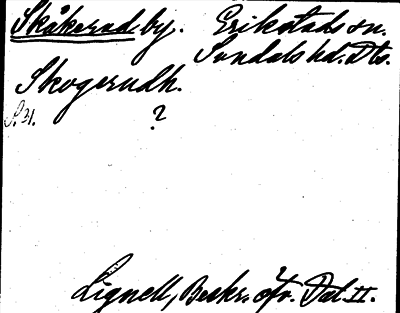 Skåkerud by. Erikstads sn.
Sundals hd. Dls.
Skogerudh.
S. 31.
?
Lignell, Beskr. öfr. Dal. II.